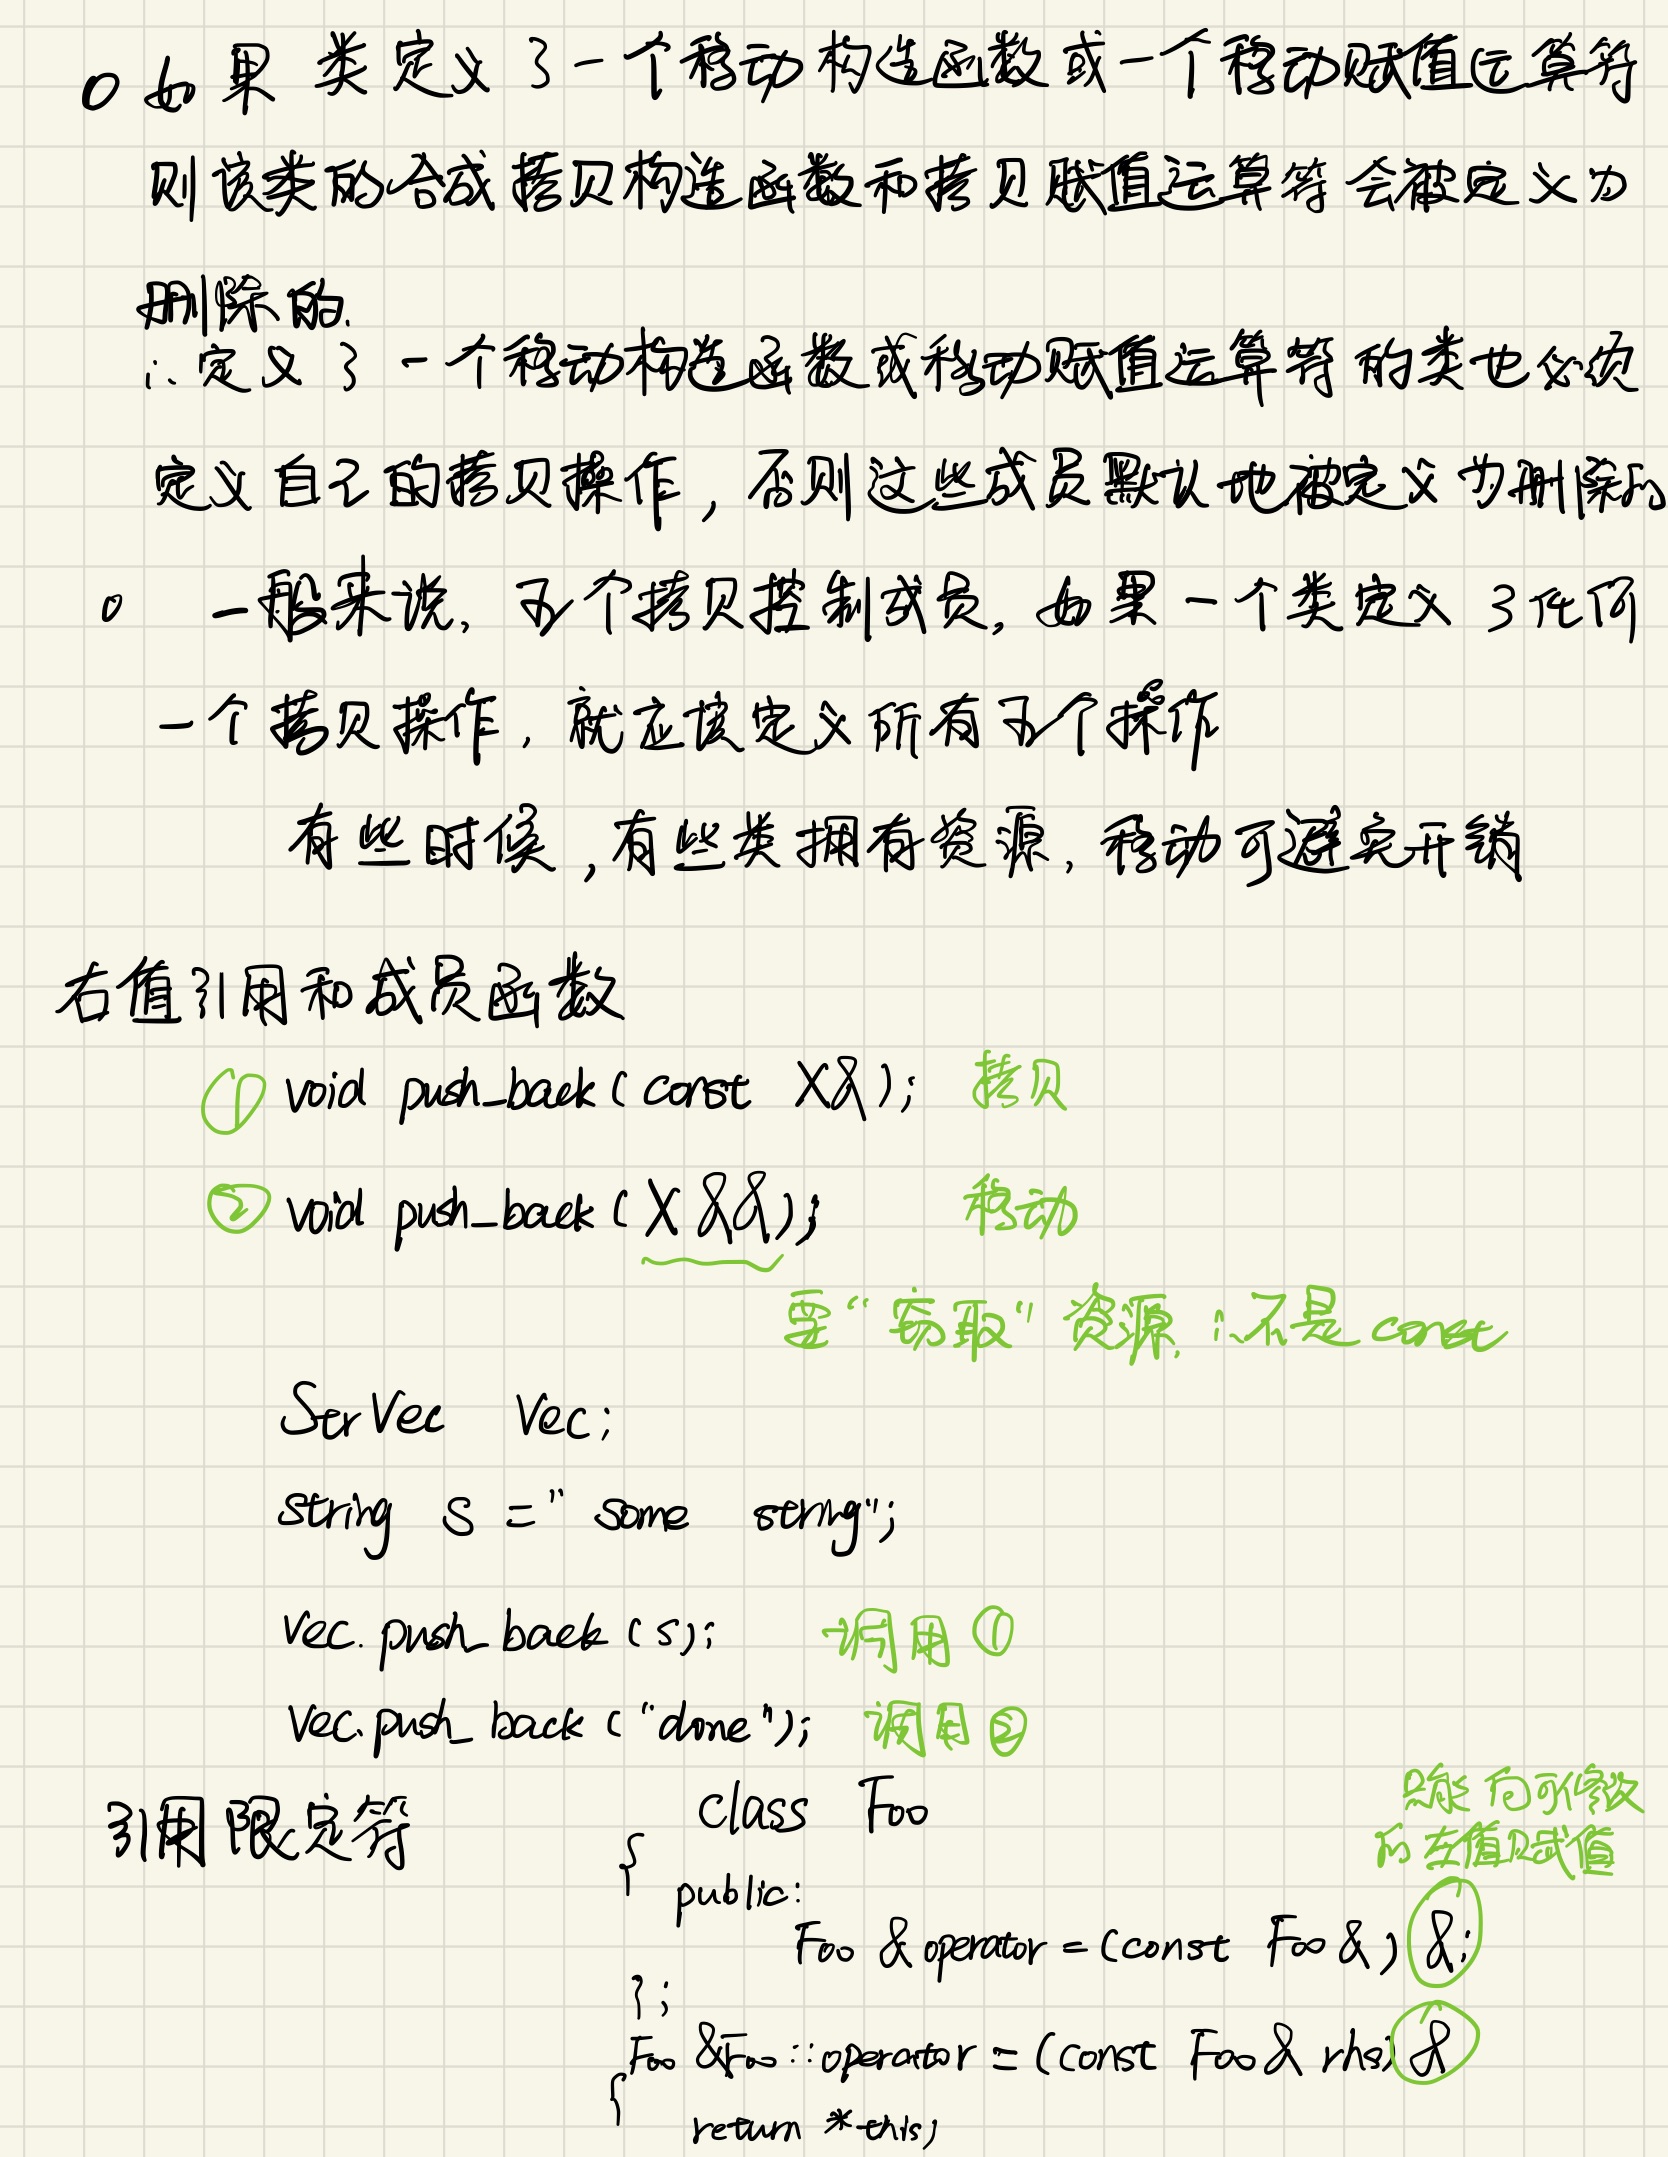 o 如果类定义了一个移动构造函数或一个移动赋值运算符
则该类的合成拷贝构造函数和拷贝赋值运算符会被定义为
删除的.
∴定义了一个移动构造函数或移动赋值运算符的类也必须
定义自己的拷贝操作，否则这些成员默认地被定义为删除的
o 一般来说，五个拷贝控制成员，如果一个类定义了任何
一个拷贝操作，就应该定义所有五个操作
有些时候，有些类拥有资源，移动可避免开销
右值引用和成员函数
① void push_back(const X&); 拷贝
② void push_back(X&&); 移动
要“窃取”资源，∴不是const
StrVec Vec;
string s = "some string";
Vec.push_back(s); 调用①
Vec.push_back("done"); 调用②
引用限定符 class Foo
只能向可修改
的左值赋值
{ public:
Foo &operator=(const Foo&) &;
};
Foo &Foo::operator=(const Foo& rhs) &
{
return *this;